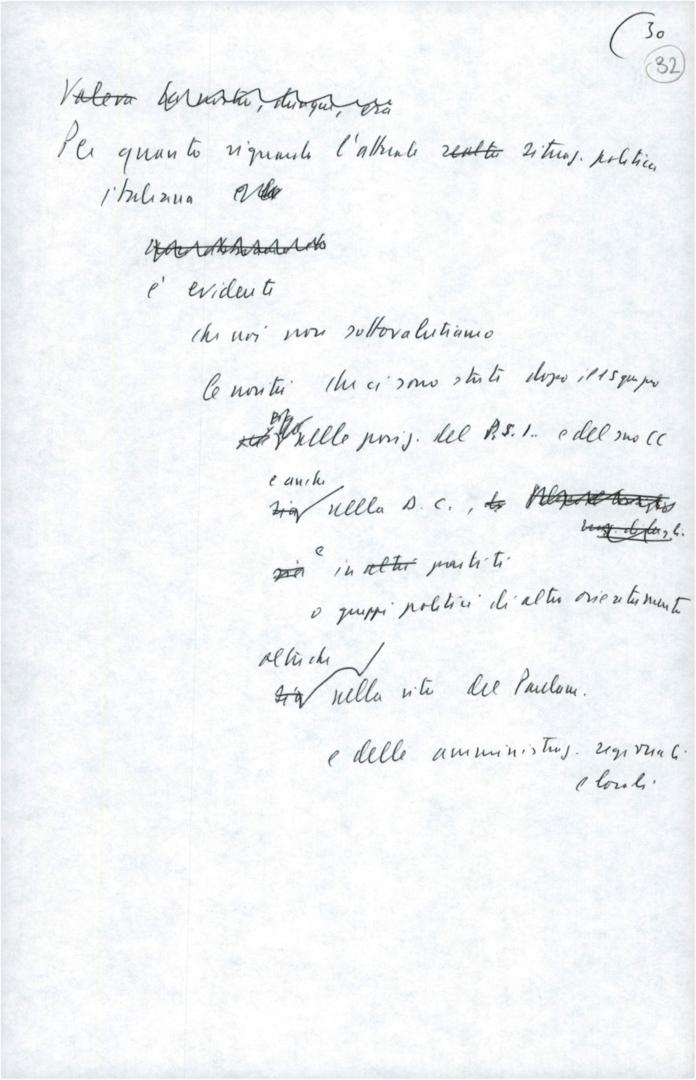 30
32
Valeva
Per quanto riguarda l'attuale realtà situaz. politica
italiana
è evidente
che noi non sottovalutiamo
le novità che ci sono state dopo il 15 giugno
nelle posiz. del P.S.I. e del suo CC
e anche
sia nella D.C.,
sia e in altri partiti
o gruppi politici di altro orientamento
oltreché
sia nella vita del Parlam.
e delle amministraz. regionali
e locali.